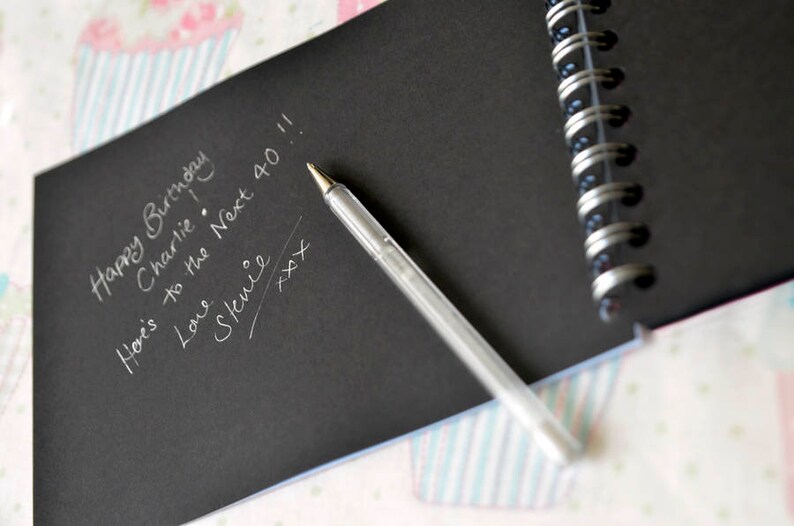 Happy Birthday
Charlie!
Here's to the Next 40!!
Love
Stevie
xxx